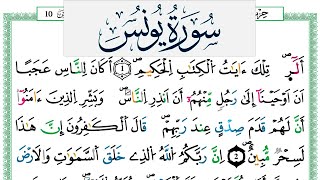 سُورَةُ يُونُسَ
10
أَلَٓرۖ تِلْكَ ءَايَٰتُ اُ۬لْكِتَٰبِ اِ۬لْحَكِيمِۖ ١ أَكَانَ لِلنَّاسِ عَجَباً
اَنَ اَوْحَيْنَآ إِلَىٰ رَجُلٖ مِّنْهُمُۥٓ أَنَ اَنذِرِ اِ۬لنَّاسَۖ وَبَشِّرِ اِ۬لذِينَ ءَامَنُوٓاْ
أَنَّ لَهُمْ قَدَمَ صِدْقٍ عِندَ رَبِّهِمْۖ قَالَ اَ۬لْكَٰفِرُونَ إِنَّ هَٰذَا
لَسِحْرٞ مُّبِينٌۖ ٢ إِنَّ رَبَّكُمُ اُ۬للَّهُ اُ۬لذِے خَلَقَ اَ۬لسَّمَٰوَٰتِ وَالَارْضَ